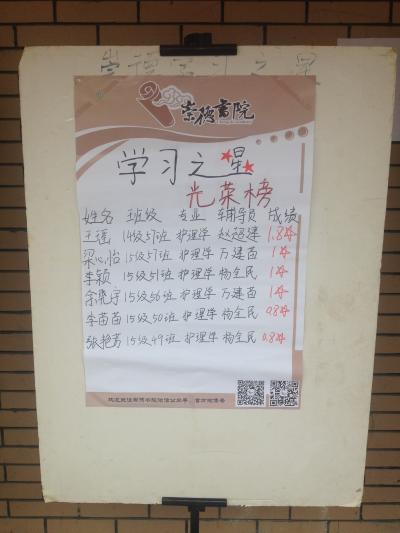 崇德学习之星
崇德書院
学习之星
光荣榜
姓名 班级 专业 辅导员 成绩
王瑶 14级57班 护理学 赵超建 1.8分
梁心怡 15级57班 护理学 万建苗 1分
李颖 15级51班 护理学 杨全民 1分
15级56班 护理学 万建苗 1分
李苗苗 15级50班 护理学 杨全民 0.8分
张艳芳 15级49班 护理学 杨全民 0.8分